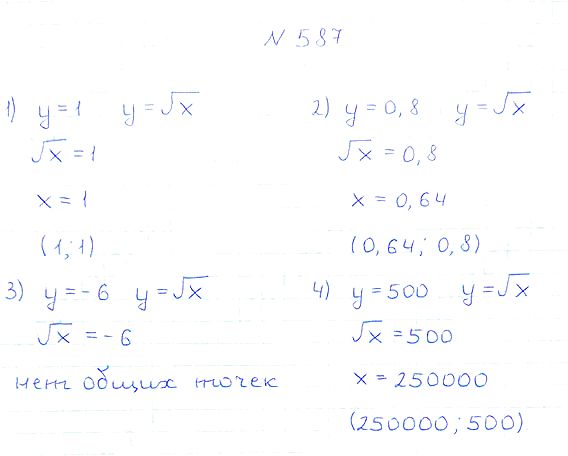 N 587
1) y = 1 y = √x
√x = 1
x = 1
(1; 1)
2) y = 0,8 y = √x
√x = 0,8
x = 0,64
(0,64; 0,8)
3) y = - 6 y = √x
√x = - 6
нет общих точек
4) y = 500 y = √x
√x = 500
x = 250000
(250000; 500)